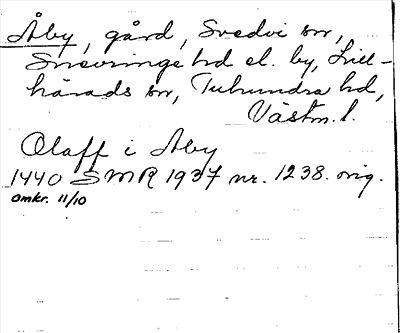 Åby, gård, Svedvi sn,
Snevringe hd el. by, Lill-
härads sn, Tuhundra hd,
Västm. l.
Olaff i Aby
1440 SMR 1937 nr. 1238. orig.
omkr. 11/10